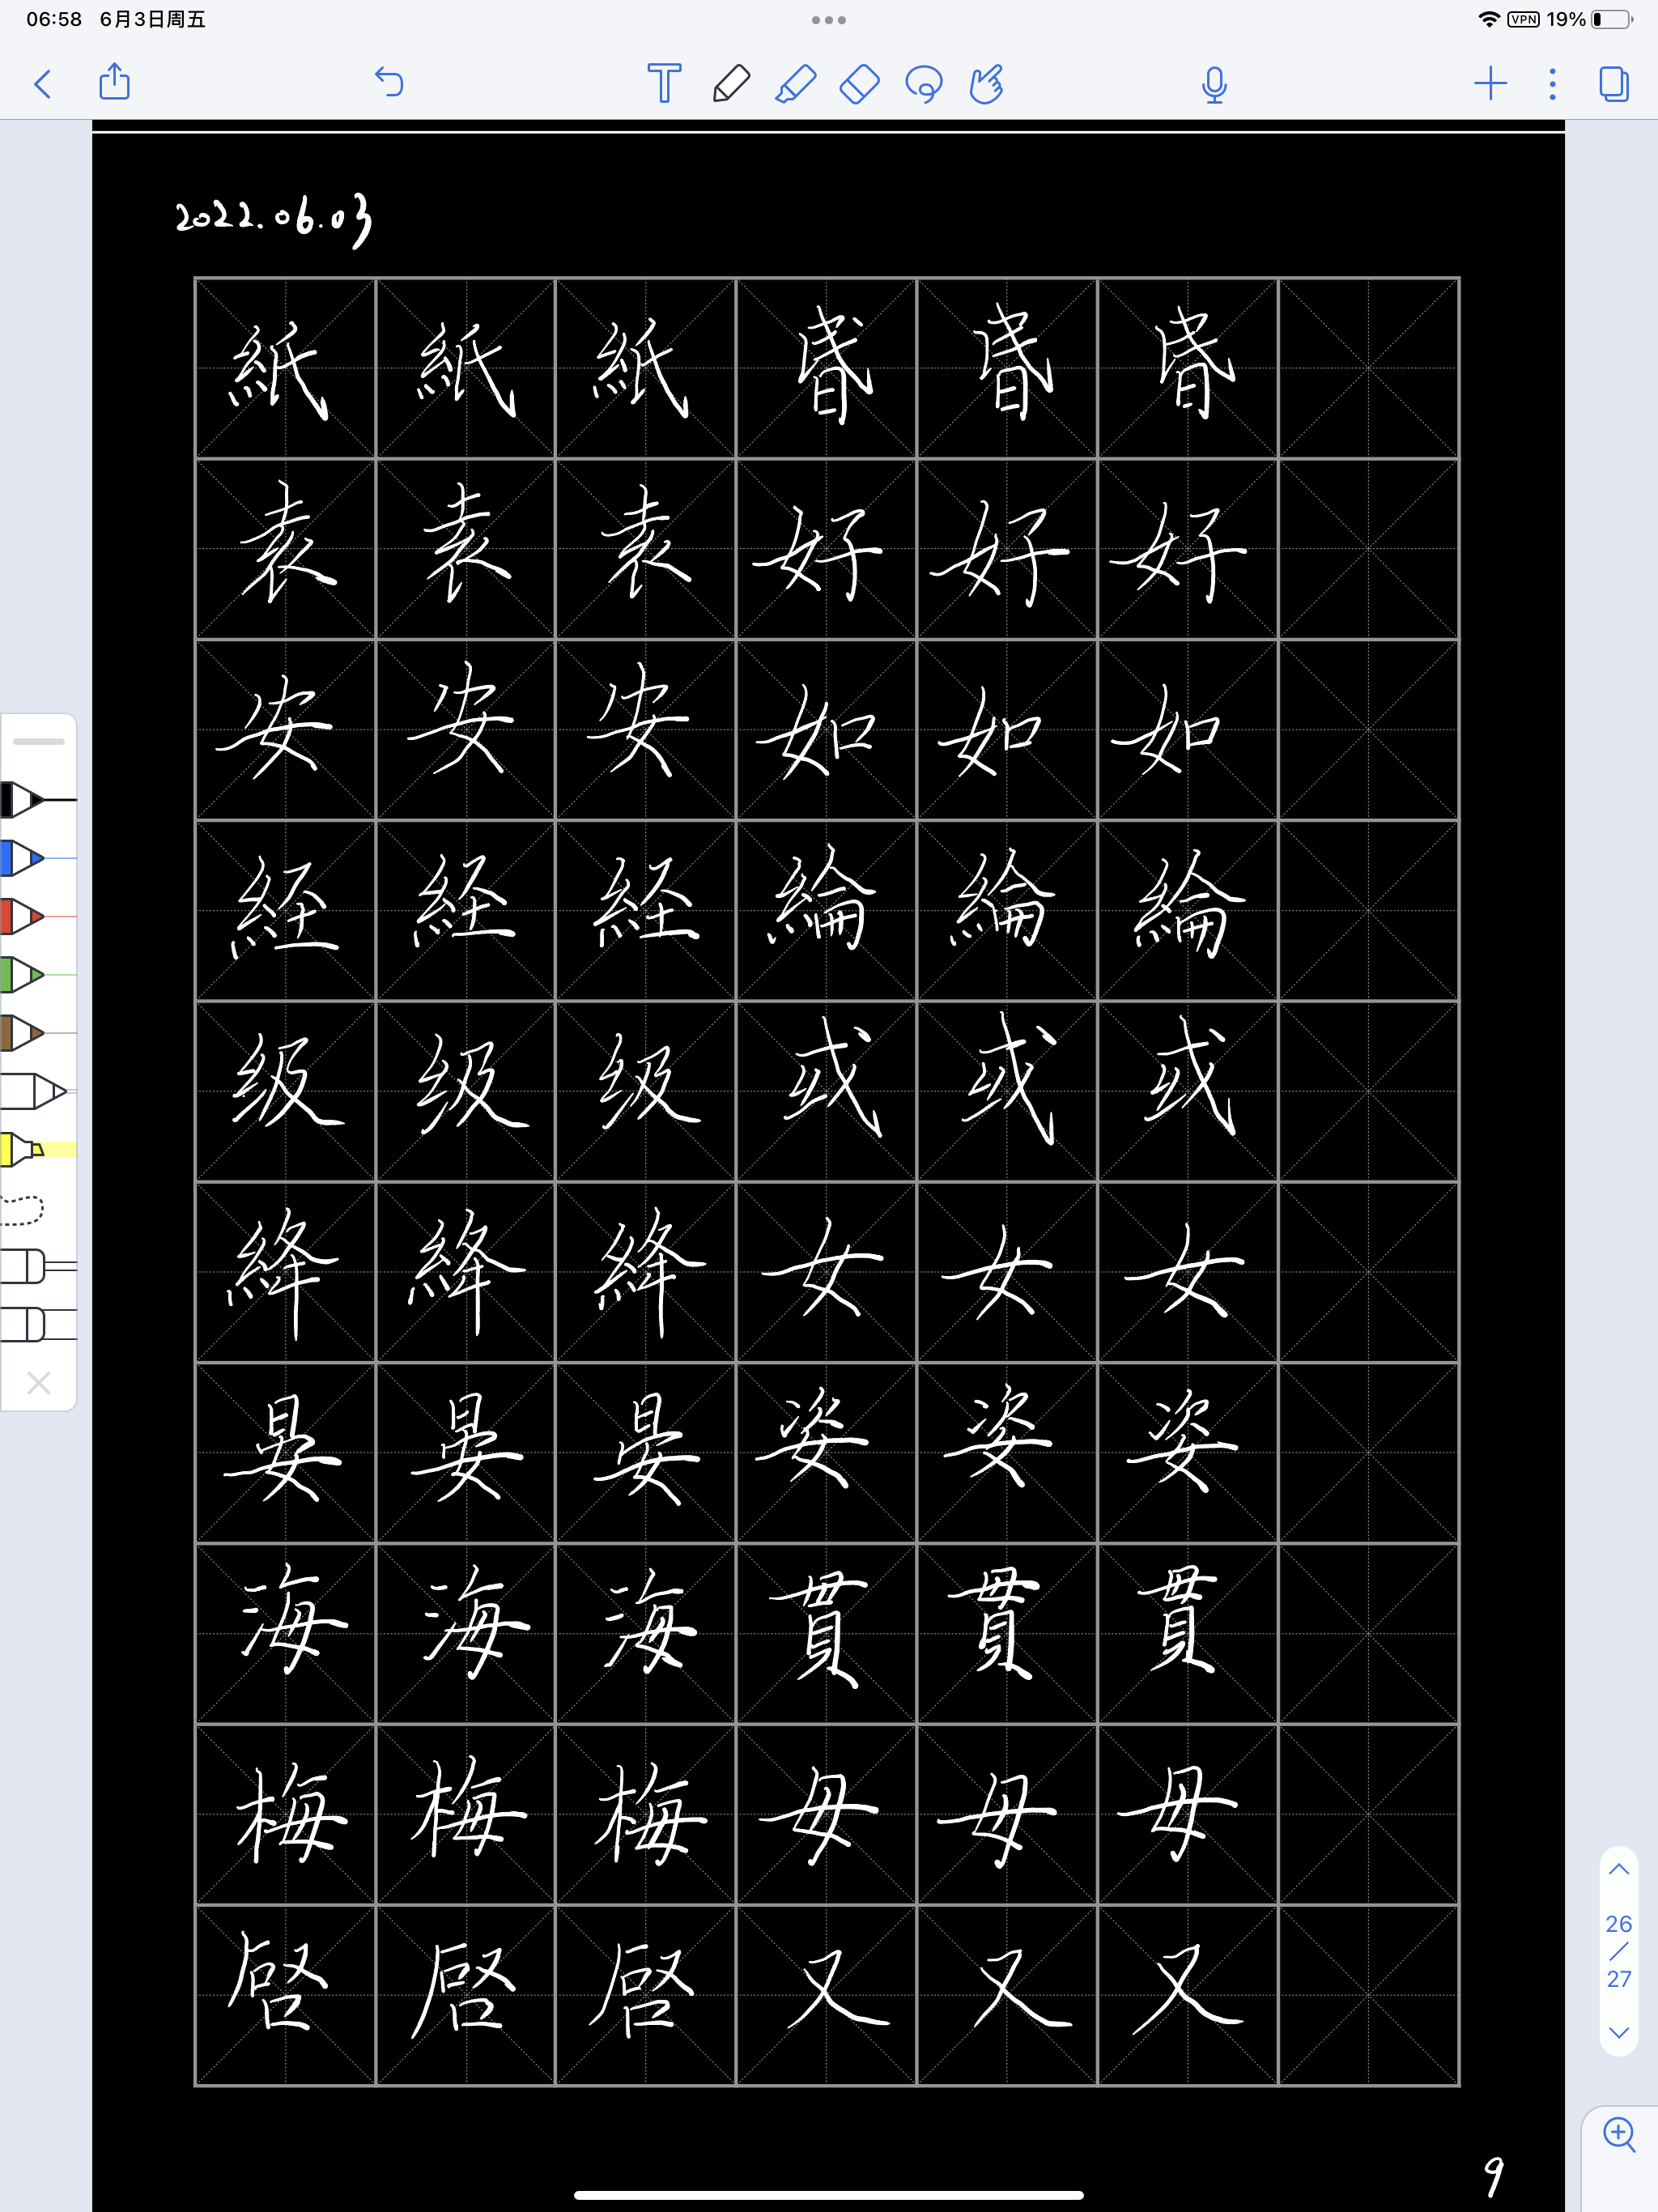 06:58 6月3日周五
VPN 19%
2022.06.03
紙 紙 紙 昬 昬 昬
袁 袁 袁 好 好 好
安 安 安 如 如 如
経 経 経 綸 綸 綸
级 级 级 或 或 或
絳 絳 絳 女 女 女
晏 晏 晏 姿 姿 姿
海 海 海 貫 貫 貫
梅 梅 梅 毋 毋 毋
啓 啓 啓 又 又 又
26
/
27
9